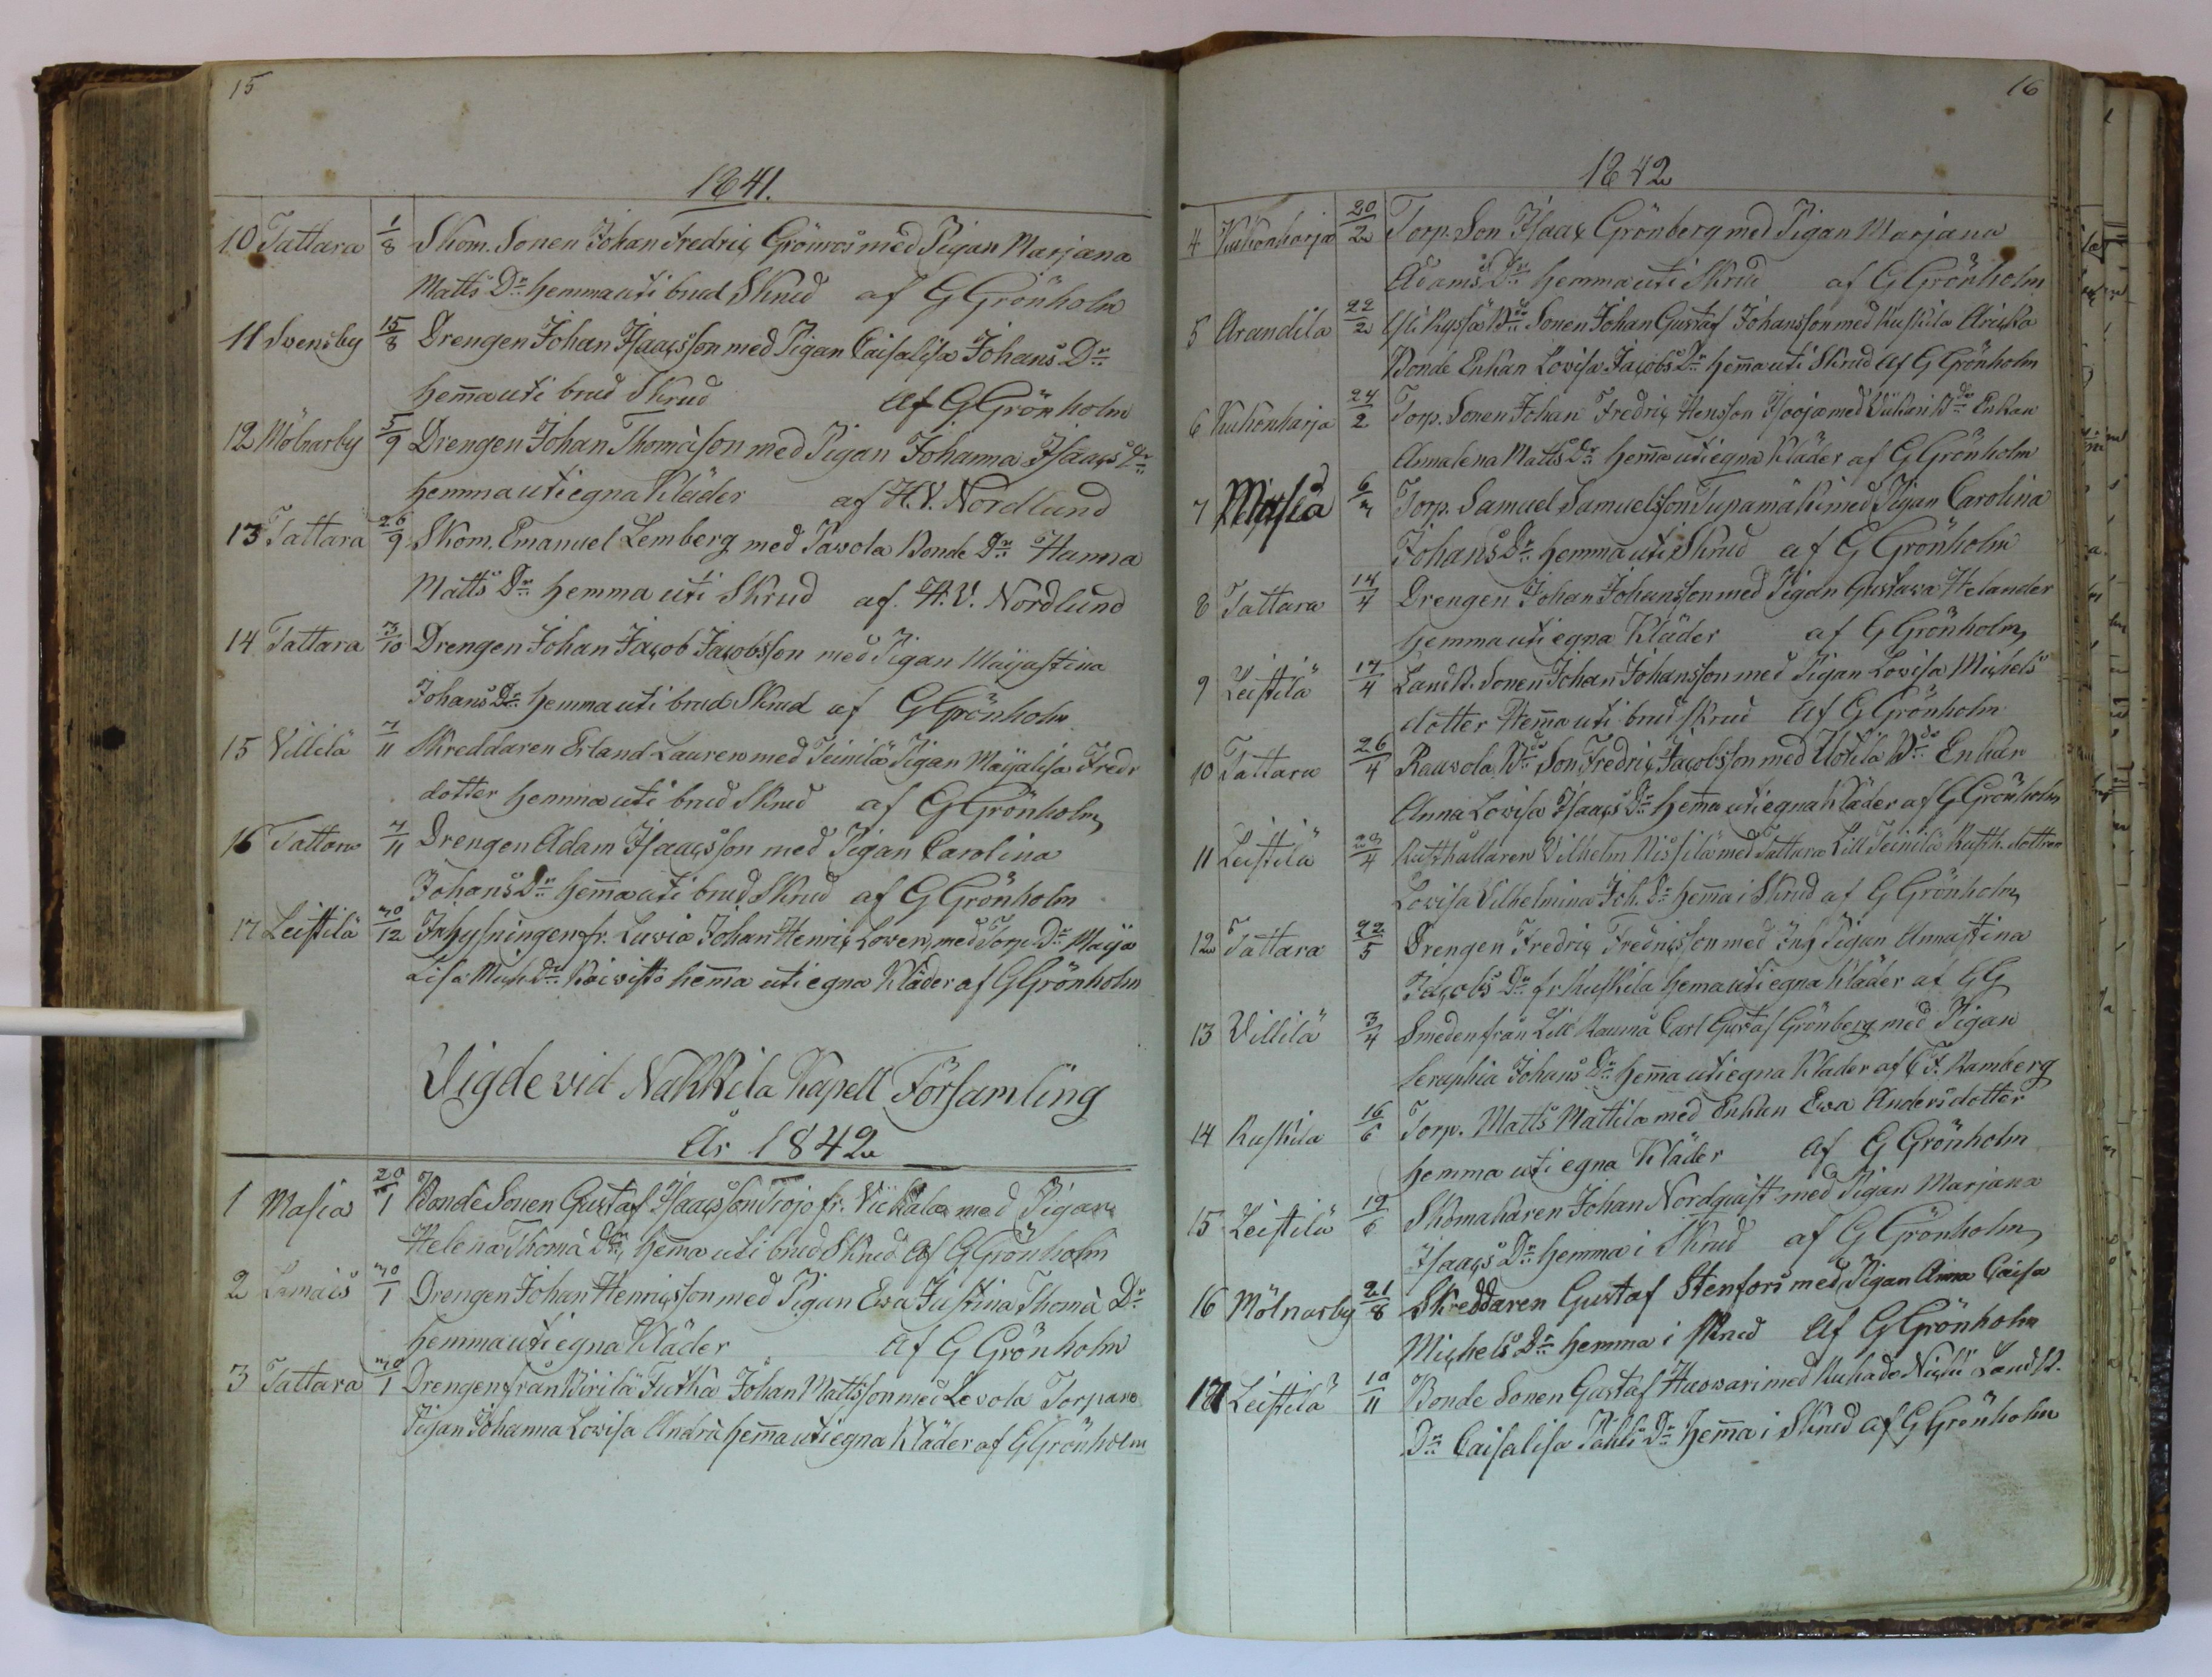 15
1841.
10 Tattara 1/8 Skom. Sonen Johan Fredric Grönroos med Pigan Marjana
Matts Dr hemma uti brud Skrud af G Grönholm
11 Svensby 15/8 Drengen Johan Isaacsson med Pigan Caisalisa Johans Dr
hem̄a uti brud Skrud af G Grönholm
12 Mölnarby 5/9 Drengen Johan Thomasson med Pigan Johanna Isaacs Dr
hemma uti egna Kläder af H.V. Nordlund
13 Tattara 26/9 Skom. Emanuel Lemberg med Pawola Bonde Dr Hanna
Matts Dr hemma uti Skrud af H.V. Nordlund
14 Tattara 3/10 Drengen Johan Jacob Jacobsson med Pigan Maijastina
Johans Dr hemma uti brud Skrud af G Grönholm
15 Villilä 7/11 Skreddaren Erland Lauren med Teinilä Pigan Maijalisa Fredr
dotter hemma uti brud Skrud af G Grönholm
16 Tattara 7/11 Drengen Adam Isaacsson med Pigan Carolina
Johans Dr hem̄a uti brud Skrud af G Grönholm
17 Leistilä 30/12 Inhysningen fr. Luvia Johan Henric Löwen, med Torp. Dr Maija
Lisa Mich. Dr Koivisto hem̄a uti egna Kläder af G Grönholm
Vigde vid Nakkila Kapell Församling
År 1842
1 Masia 20/1 Bonde Sonen Gustaf Isaacsson Trojo fr. Vickala med Pigan
Helena Thomä Dr, hem̄a uti brud Skrud af G Grönholm
2 Lamais 30/1 Drengen Johan Henricsson med Pigan Ewa Justina Thomä Dr
hemma uti egna Kläder af G Grönholm
3 Tattara 30/1 Drengen från Birilä Jutha Johan Mattsson med Levola Torpare
Pigan Johanna Lovisa Andrä hem̄a uti egna Kläder af G Grönholm
16
1842
4 Kukonharja 20/2 Torp. Son Isaac Grönberg med Pigan Marjana
Adams Dr hemma uti Skrud af G Grönholm
5 Arandila 22/2 Bde Sonen Johan Gustaf Johansson med Ruskila
Bonde Enkan Lovisa Jacobs Dr hem̄a uti Skrud af G Grönholm
6 Kukonharja 24/2 Torp. Sonen Johan Fredric Hensson med Bde Enkan
Annalena Matts Dr hem̄a uti egna Kläder af G Grönholm
7 Masia 6/3 Torp. Samuel Samuelsson Tupamäki med Pigan Carolina
Johans Dr hemma uti Skrud af G Grönholm
8 Tattara 14/4 Drengen Johan Johansson med Pigan Gustava Helander
hemma uti egna Kläder af G Grönholm
9 Leistilä 17/4 Landb. Sonen Johan Johansson med Pigan Lovisa Michels
dotter Hem̄a uti brud skrud af G Grönholm
10 Tattara 26/4 Rauvola Bde Son Fredric Jacobsson med Uotila Bde Enkan
Anna Lovisa Isaacs Dr hem̄a uti egna Kläder af G Grönholm
11 Leistilä 29/4 Rusthållaren Vilhelm Nissilä med Tattara Lill Teinilä Rusth. dottren
Lovisa Vilhelmina Joh. Dr hem̄a i Skrud af G Grönholm
12 Tattara 22/5 Drengen Fredric Fredricsson med Inh Pigan Annastina
Jacobs Dr fr. Ruskila hema uti egna Kläder af GG
13 Villilä 3/4 Smeden från Lill Raumå Carl Gustaf Grönberg med Pigan
Seraphia Johans Dr hem̄a uti egna Kläder af C F. Ramberg
14 Ruskila 16/6 Torp. Matts Mattila med Enkan Ewa Andersdotter
hemma uti egna Kläder af G Grönholm
15 Leistilä 19/6 Skomakaren Johan Nordquist med Pigan Marjana
Isaacs Dr hemma i Skrud af G Grönholm
16 Mölnarby 21/8 Skreddaren Gustaf Stenfors med Pigan Anna Caisa
Michels Dr hemma i skrud af G Grönholm
17 Leistilä 10/11 Bonde Sonen Gustaf Huovari med Landb.
Dr Caisalisa Pahls Dr hem̄a i Skrud af G Grönholm